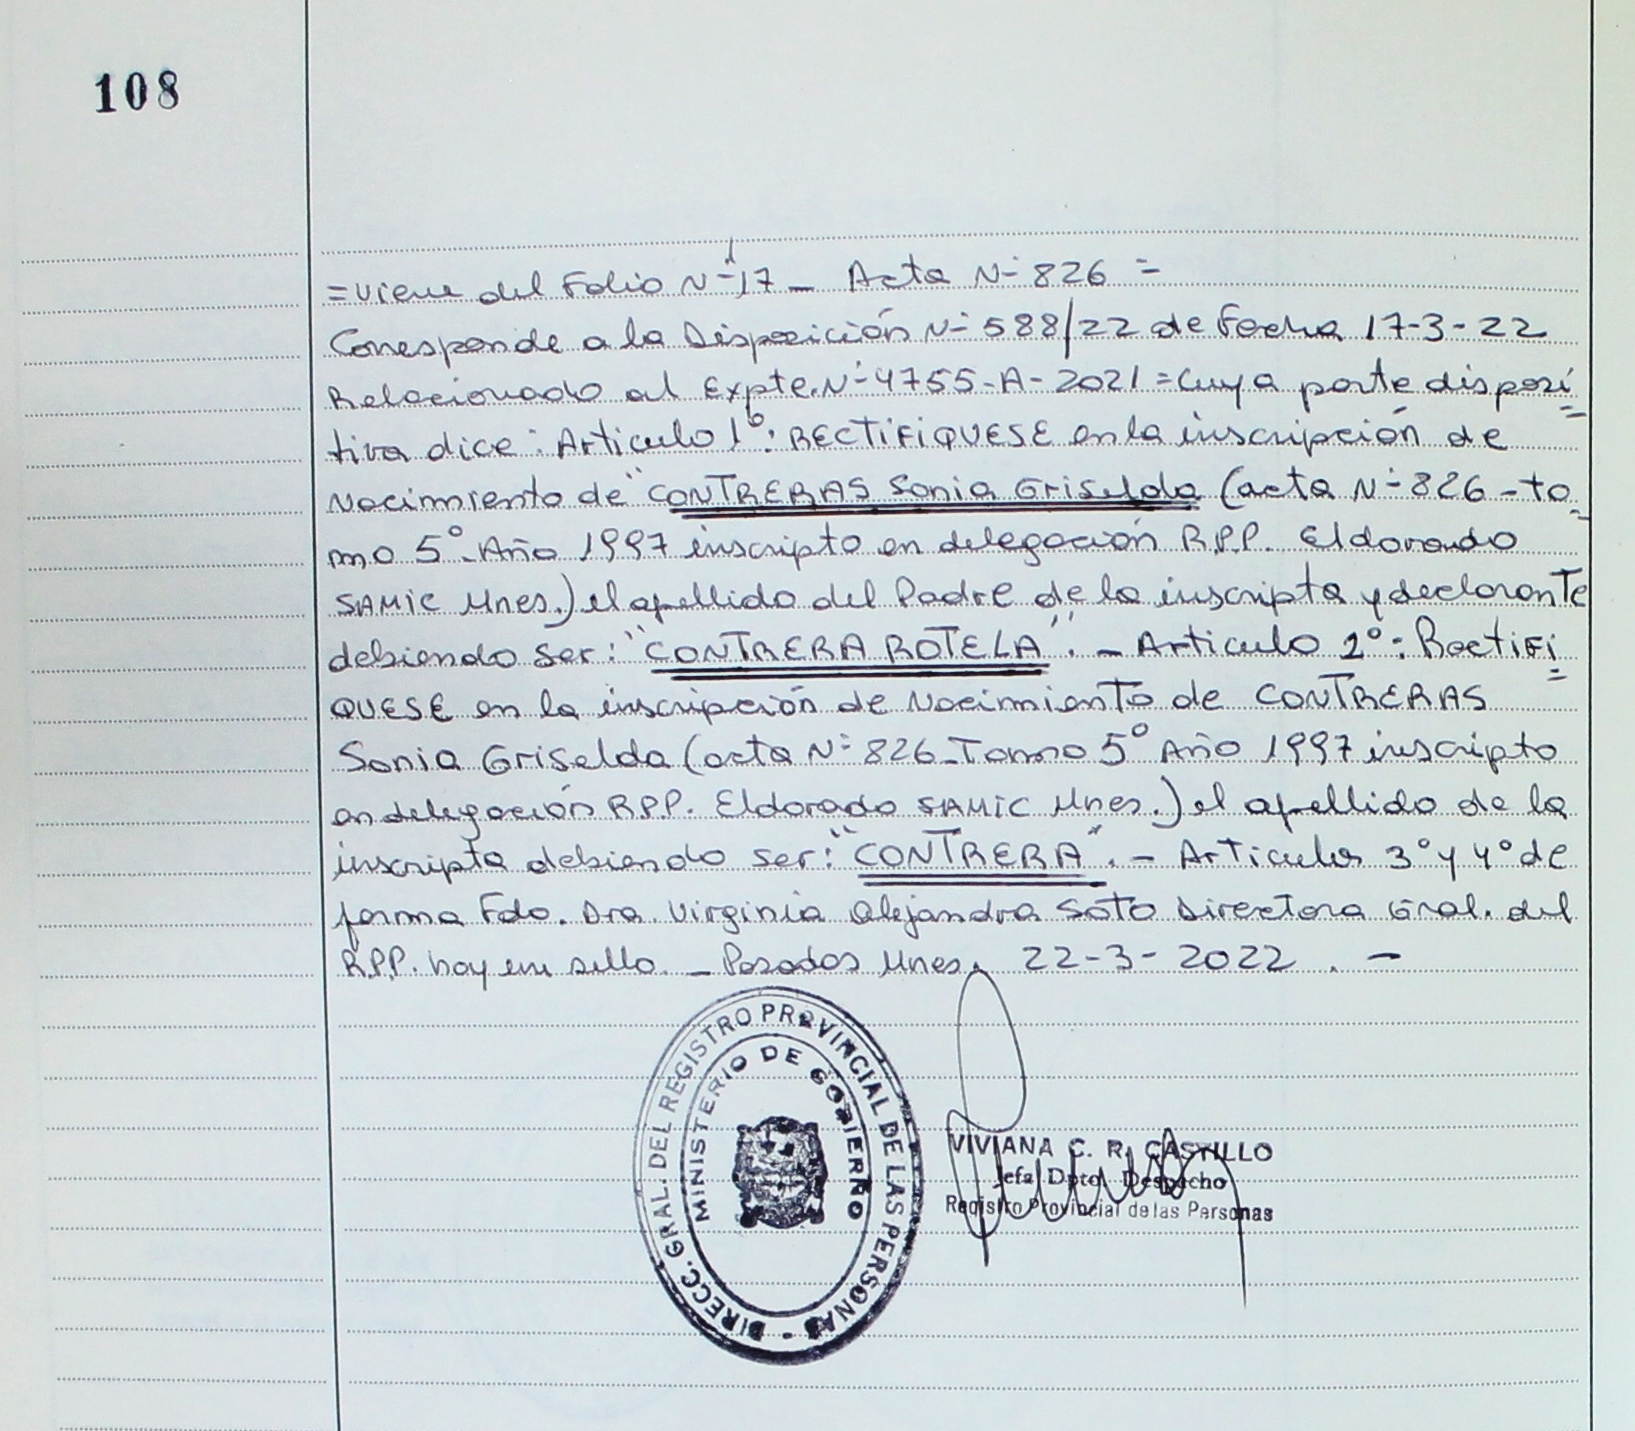 108
= Viene del Folio N° 17 _ Acta N° 826 =
Corresponde a la Disposición N° 588/22 de Fecha 17-3-22
Relacionado al Expte. N° 4755-A-2021 = Cuya parte disposi
tiva dice: Articulo 1°: RECTIFIQUESE en la inscripción de
Nacimiento de "CONTRERAS Sonia Griselda (acta N° 826 - to
mo 5° Año 1997 inscripto en delegación R.P.P. Eldorado
SAMIC Mnes.) el apellido del Padre de la inscripta y declarante
debiendo ser: "CONTRERA ROTELA". - Articulo 2°: RectiFi
QUESE en la inscripción de Nacimiento de CONTRERAS
Sonia Griselda (acta N° 826 - Tomo 5° Año 1997 inscripto
en delegación R.P.P. Eldorado SAMIC Mnes.) el apellido de la
inscripta debiendo ser: "CONTRERA". - Articulos 3° y 4° de
forma Fdo. Dra. Virginia Alejandra Soto Directora Gral. del
R.P.P. hay un sello. _ Posadas Mnes, 22-3-2022. -
DIRECC. GRAL. DEL REGISTRO PROVINCIAL DE LAS PERSONAS -
MINISTERIO DE GOBIERNO
VIVIANA C. R. CASTILLO
Jefa Dpto. Despacho
Registro Provincial de las Personas